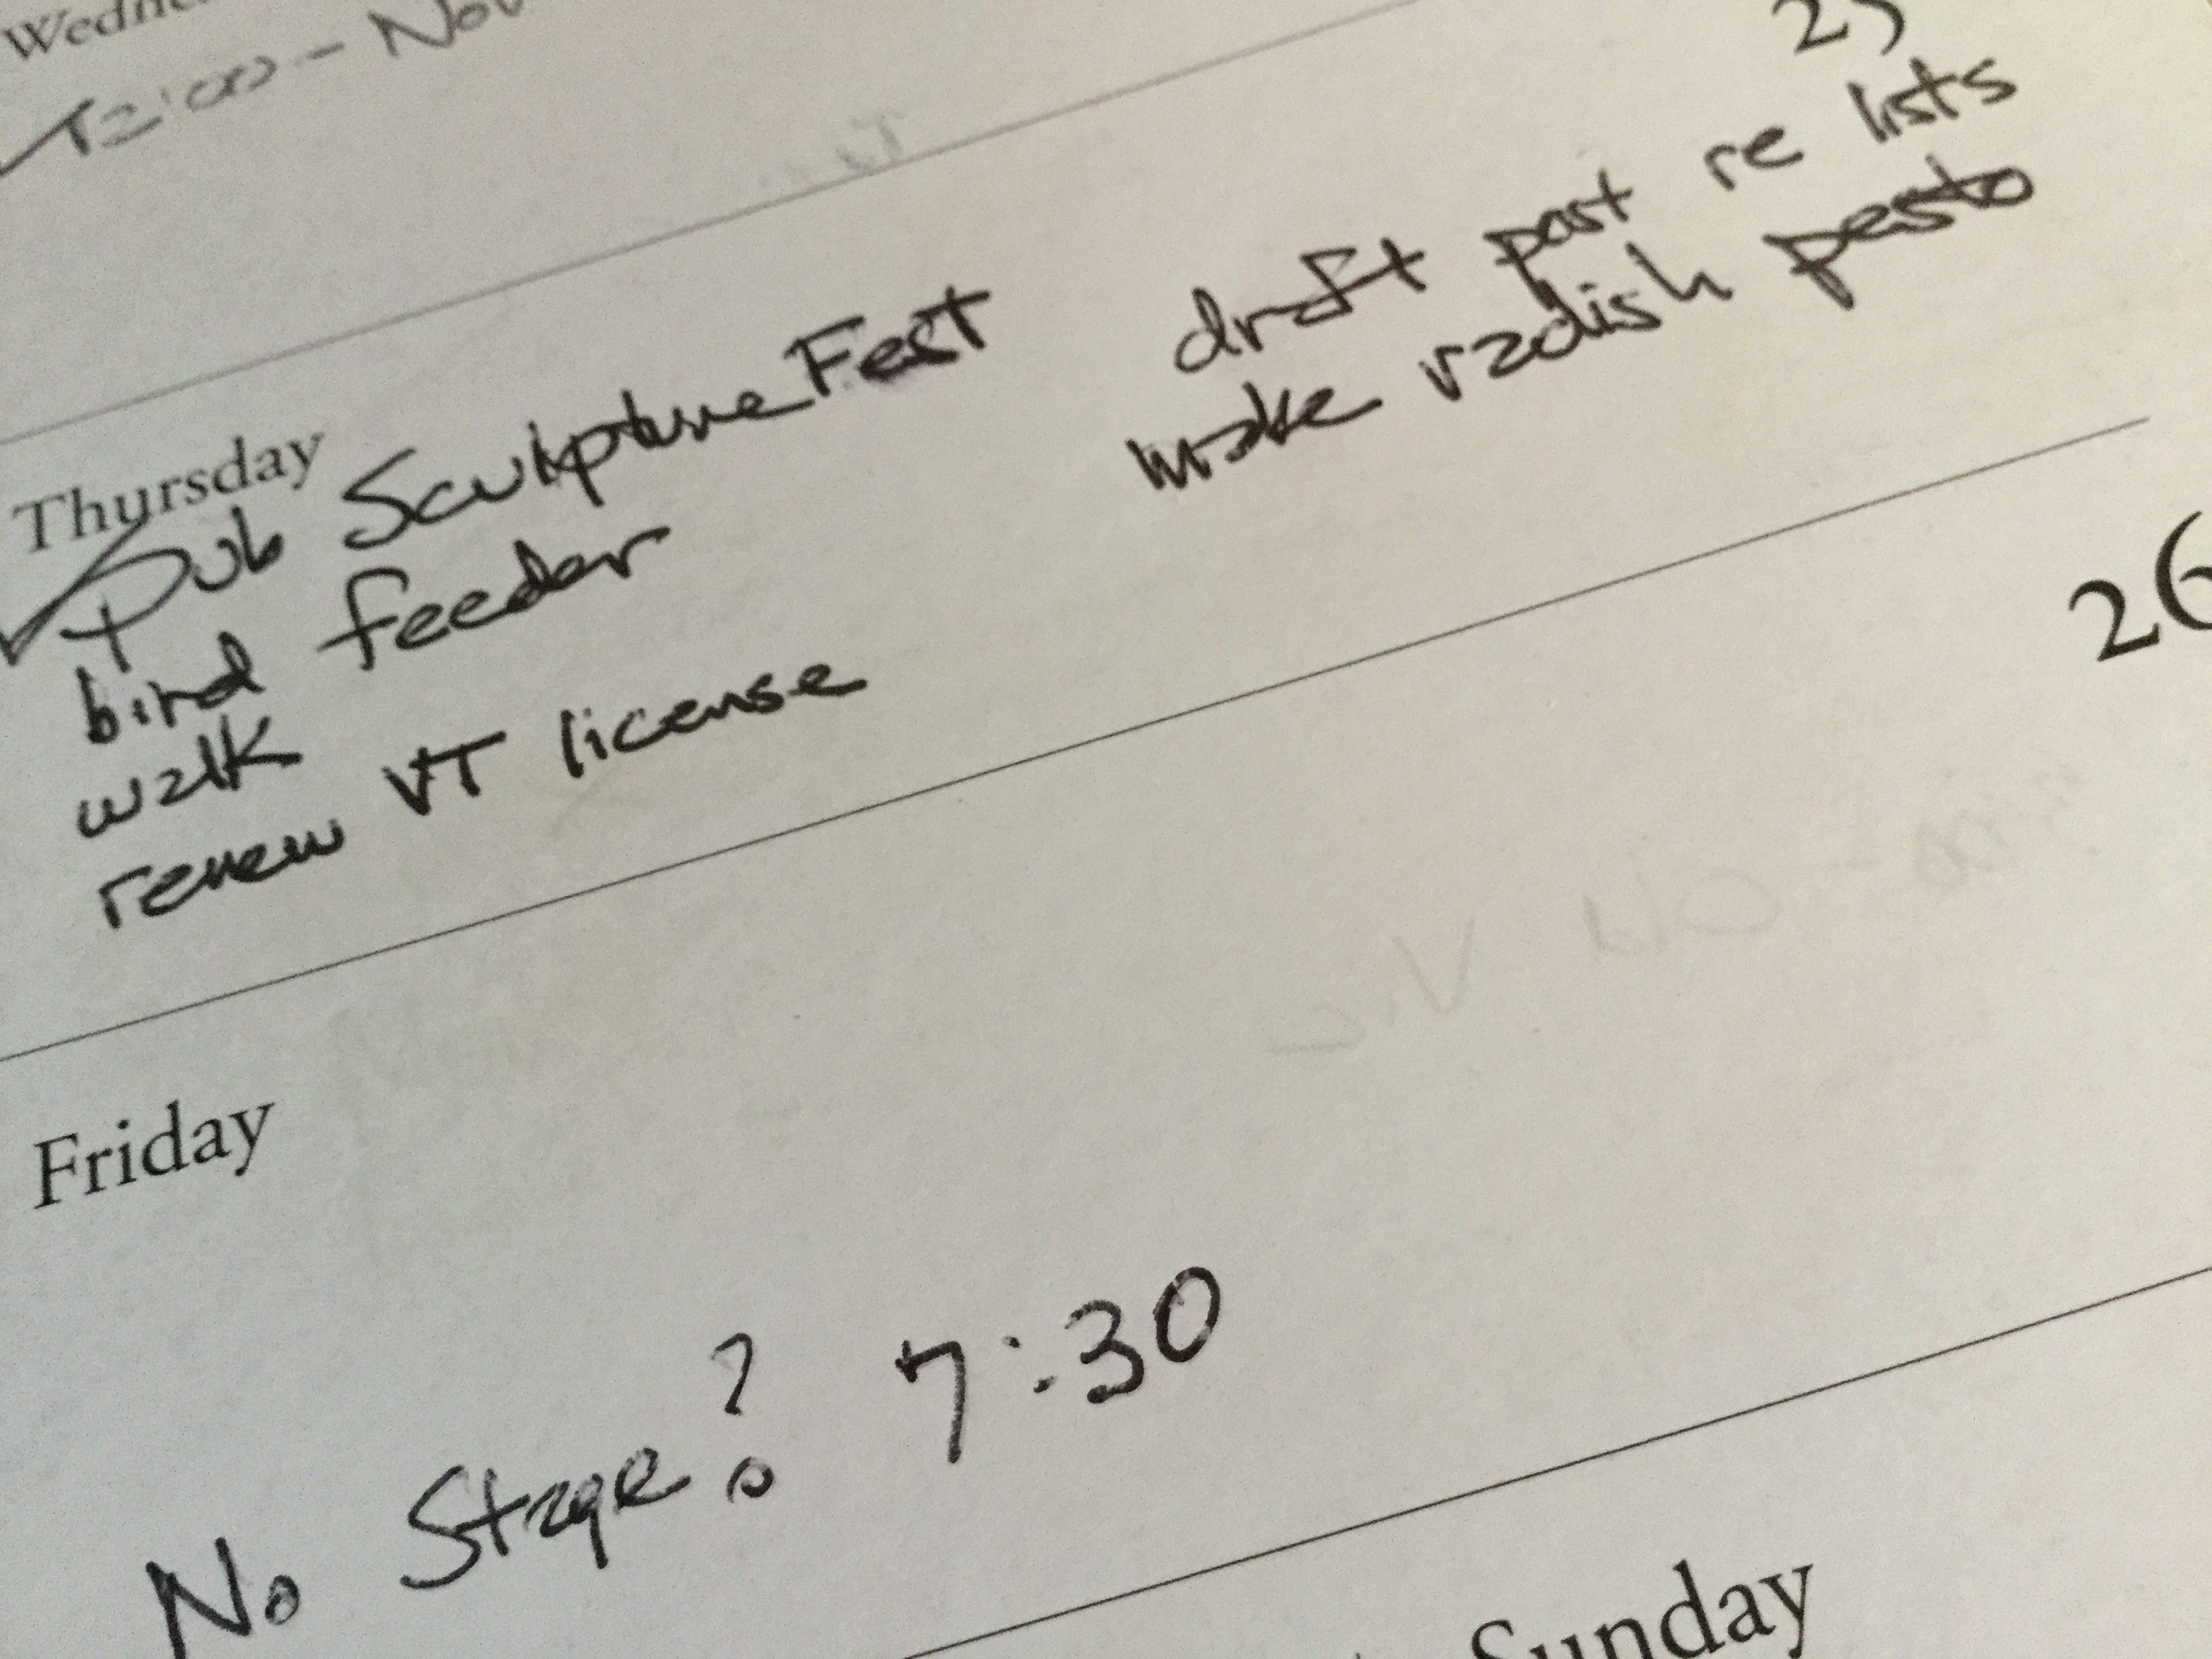 12:00 - Nov
Thursday
25
pub SculptureFest
draft post re lists
bird feeder
make radish pesto
walk
renew VT license
Friday
26
No Stage? 7:30
Sunday